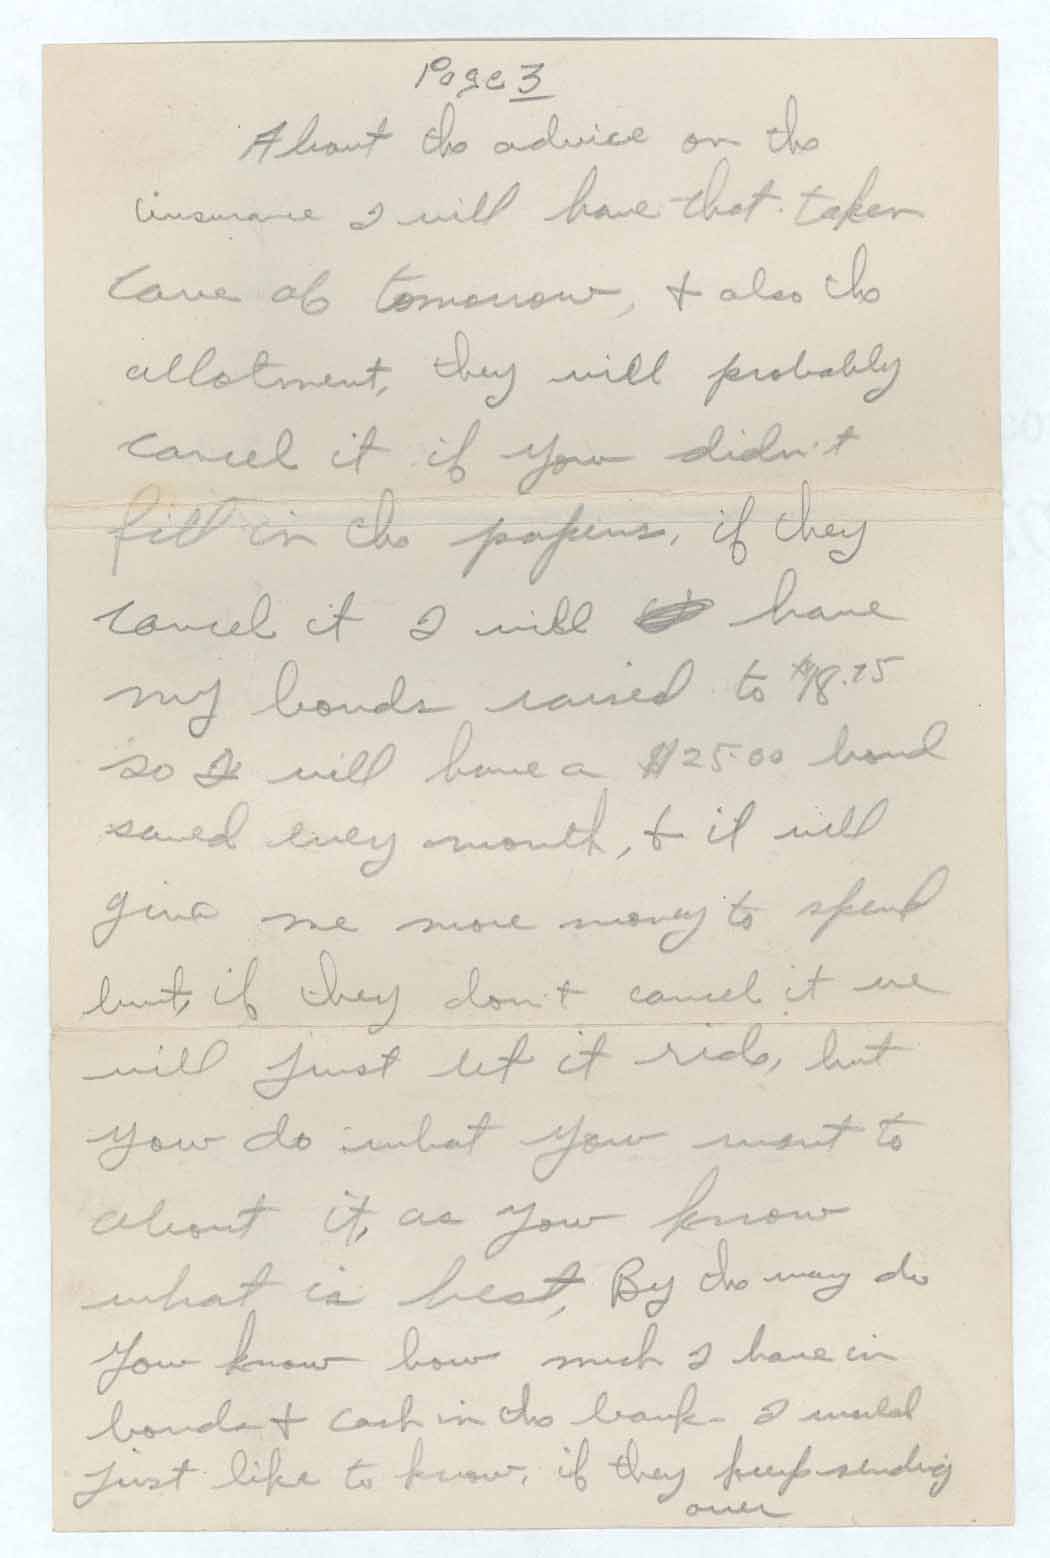 Page 3
About the advice on the
insurance I will have that taken
care of tomorrow, & also the
allotment, they will probably
cancel it if you didn't
fill in the papers, if they
cancel it I will have
my bonds raised to $18.75
so I will have a $25.00 bond
saved every month, & it will
give me more money to spend
but, if they don't cancel it we
will just let it ride, but
you do what you want to
about it, as you know
what is best, By the way do
you know how much I have in
bonds & cash in the bank - I would
just like to know, if they keep sending
over